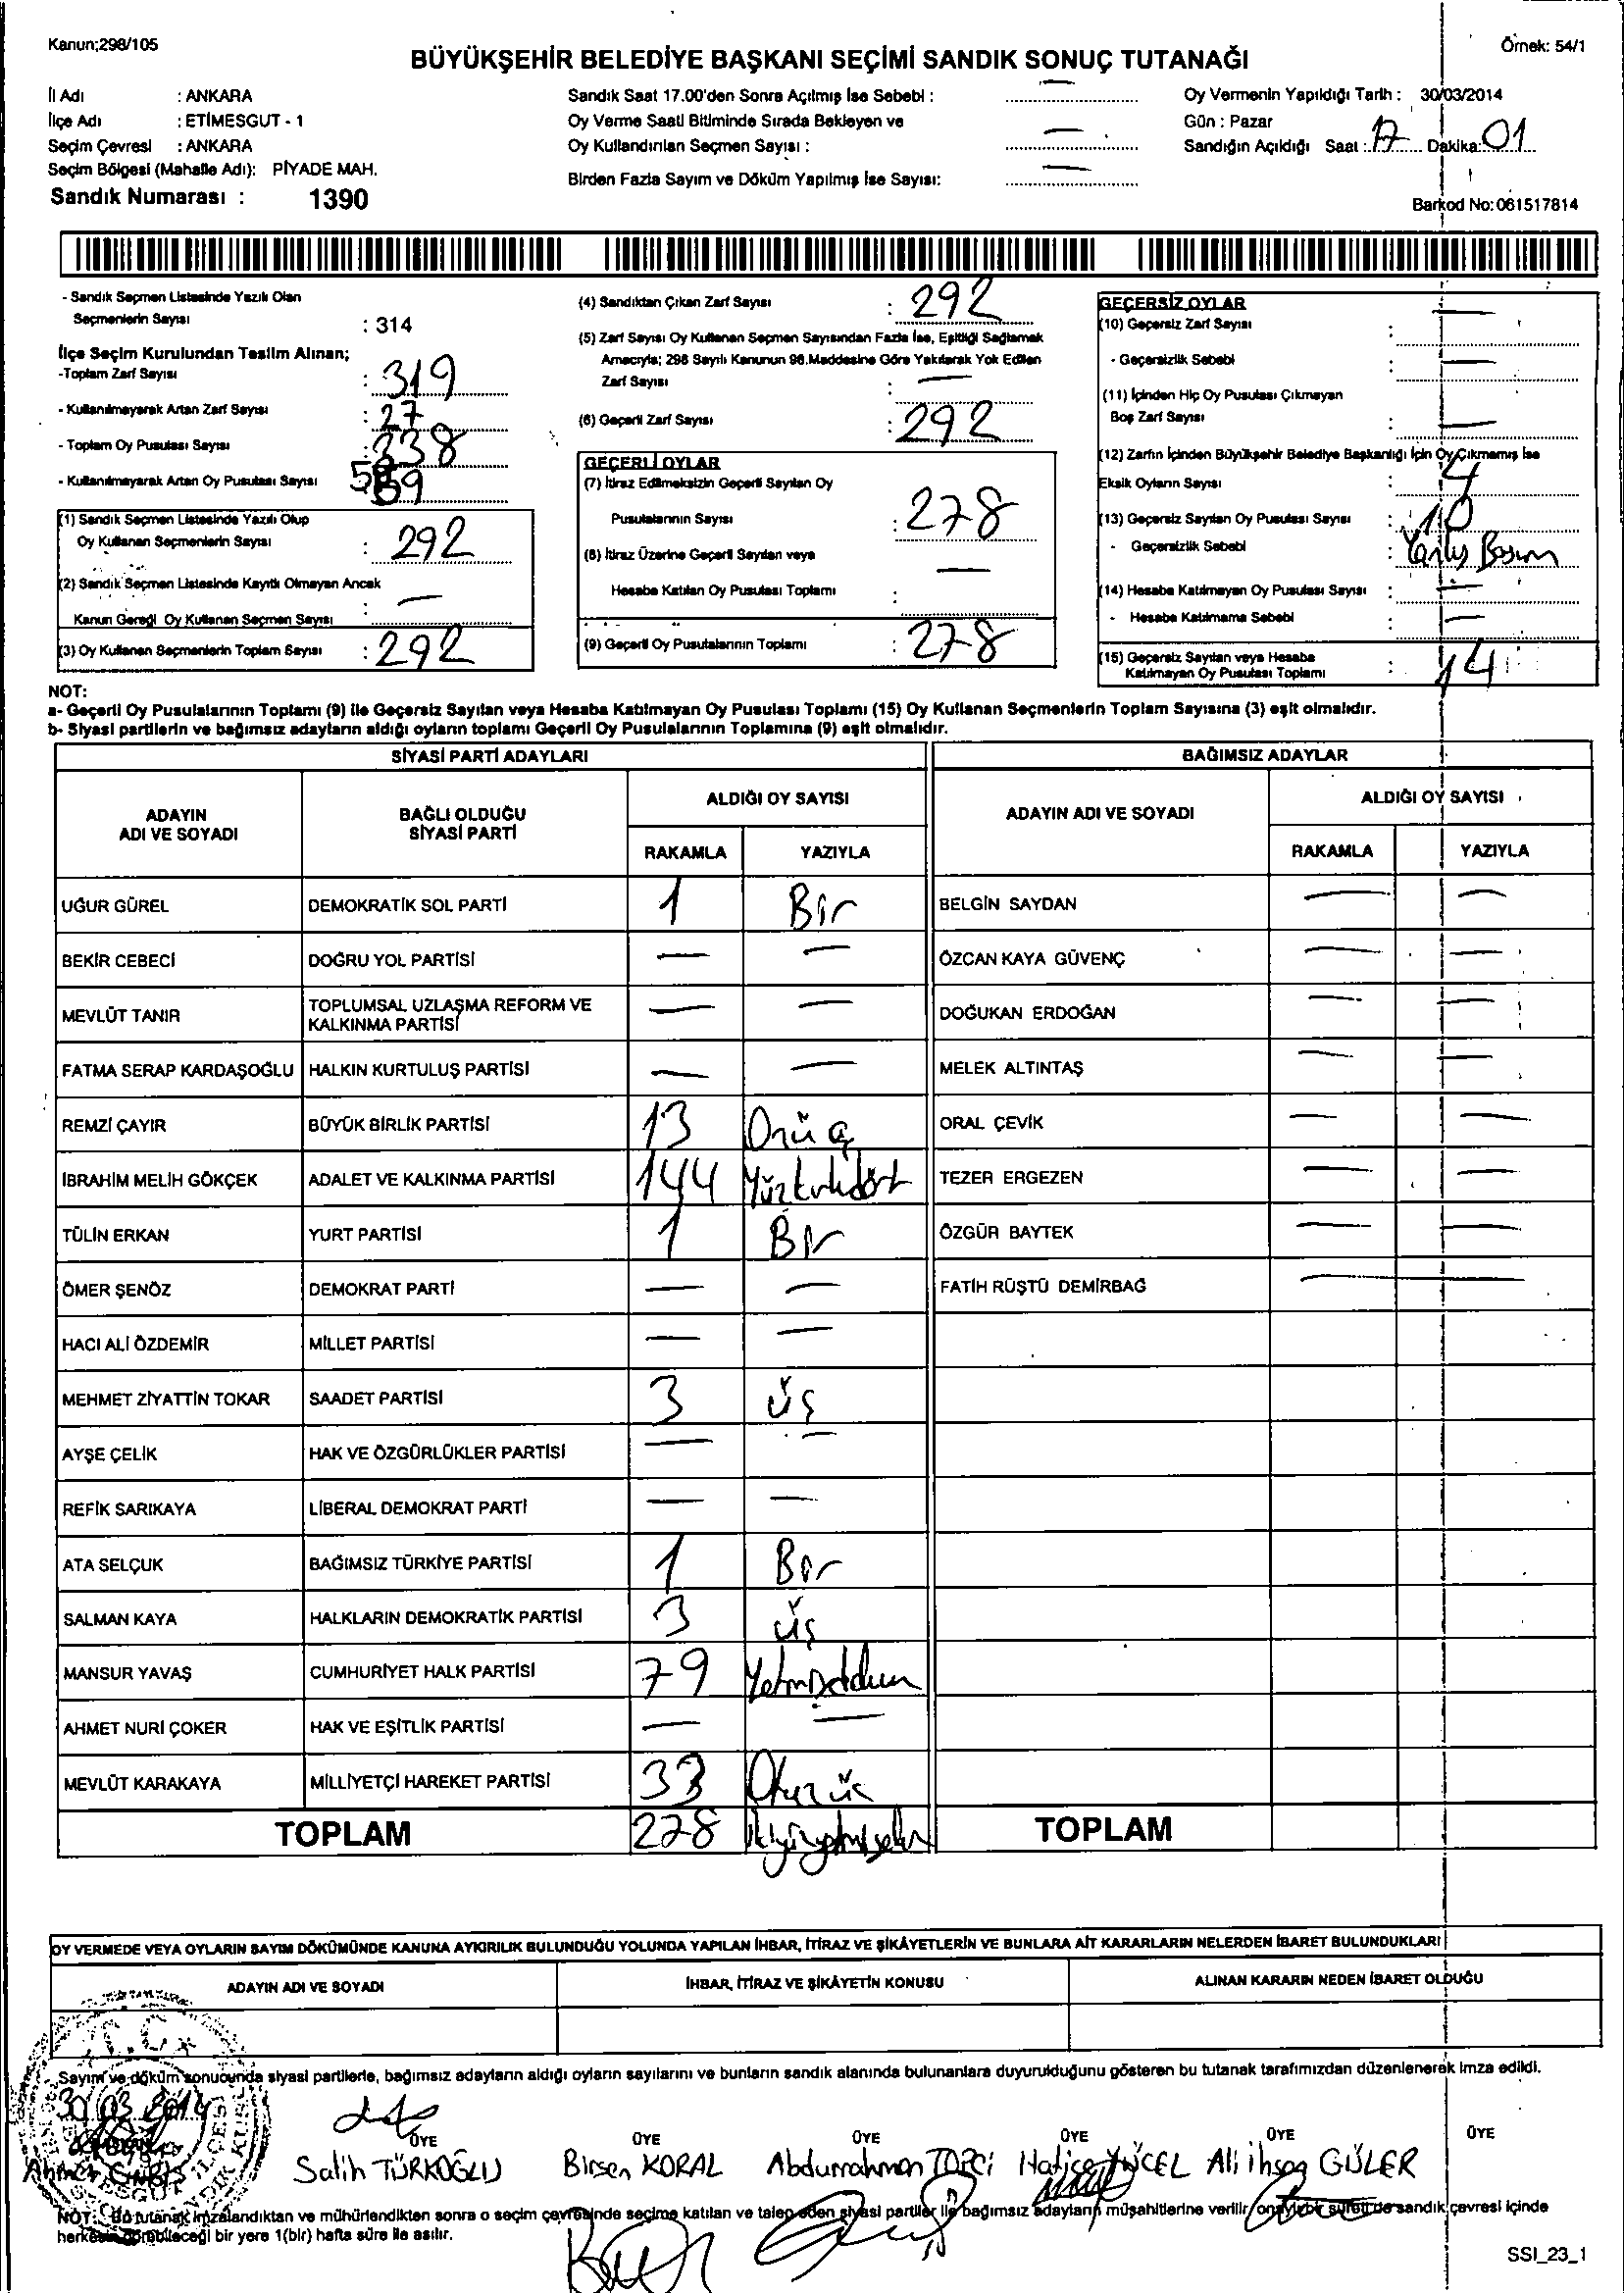 Kanun;298/105
Örnek: 54/1
BÜYÜKŞEHİR BELEDİYE BAŞKANI SEÇİMİ SANDIK SONUÇ TUTANAĞI
İl Adı : ANKARA
İlçe Adı : ETİMESGUT - 1
Seçim Çevresi : ANKARA
Seçim Bölgesi (Mahalle Adı): PİYADE MAH.
Sandık Numarası : 1390
Sandık Saat 17.00'den Sonra Açılmış İse Sebebi : —
Oy Verme Saati Bitiminde Sırada Bekleyen ve
Oy Kullandırılan Seçmen Sayısı : —
Birden Fazla Sayım ve Döküm Yapılmış İse Sayısı: —
Oy Vermenin Yapıldığı Tarih : 30/03/2014
Gün : Pazar
Sandığın Açıldığı Saat : 17 Dakika: 01
Barkod No: 061517814
- Sandık Seçmen Listesinde Yazılı Olan
Seçmenlerin Sayısı : 314
İlçe Seçim Kurulundan Teslim Alınan;
-Toplam Zarf Sayısı : 319
- Kullanılmayarak Artan Zarf Sayısı : 27
- Toplam Oy Pusulası Sayısı : 338
- Kullanılmayarak Artan Oy Pusulası Sayısı
(1) Sandık Seçmen Listesinde Yazılı Olup
Oy Kullanan Seçmenlerin Sayısı : 292
(2) Sandık Seçmen Listesinde Kayıtlı Olmayan Ancak
Kanun Gereği Oy Kullanan Seçmen Sayısı : —
(3) Oy Kullanan Seçmenlerin Toplam Sayısı : 292
(4) Sandıktan Çıkan Zarf Sayısı : 292
(5) Zarf Sayısı Oy Kullanan Seçmen Sayısından Fazla İse, Eşitliği Sağlamak
Amacıyla; 298 Sayılı Kanunun 98.Maddesine Göre Yakılarak Yok Edilen
Zarf Sayısı : —
(6) Geçerli Zarf Sayısı : 292
GEÇERLİ OYLAR
(7) İtiraz Edilmeksizin Geçerli Sayılan Oy
Pusulalarının Sayısı : 278
(8) İtiraz Üzerine Geçerli Sayılan veya
Hesaba Katılan Oy Pusulası Toplamı : —
(9) Geçerli Oy Pusulalarının Toplamı : 278
GEÇERSİZ OYLAR
(10) Geçersiz Zarf Sayısı : —
- Geçersizlik Sebebi : —
(11) İçinden Hiç Oy Pusulası Çıkmayan
Boş Zarf Sayısı : —
(12) Zarfın İçinden Büyükşehir Belediye Başkanlığı İçin Oy Çıkmamış İse
Eksik Oyların Sayısı : 4
(13) Geçersiz Sayılan Oy Pusulası Sayısı : 10
- Geçersizlik Sebebi : Yanlış Basım
(14) Hesaba Katılmayan Oy Pusulası Sayısı : —
- Hesaba Katılmama Sebebi : —
(15) Geçersiz Sayılan veya Hesaba
Katılmayan Oy Pusulası Toplamı : 14
NOT:
a- Geçerli Oy Pusulalarının Toplamı (9) ile Geçersiz Sayılan veya Hesaba Katılmayan Oy Pusulası Toplamı (15) Oy Kullanan Seçmenlerin Toplam Sayısına (3) eşit olmalıdır.
b- Siyasi partilerin ve bağımsız adayların aldığı oyların toplamı Geçerli Oy Pusulalarının Toplamına (9) eşit olmalıdır.
SİYASİ PARTİ ADAYLARI
ADAYIN ADI VE SOYADI BAĞLI OLDUĞU SİYASİ PARTİ ALDIĞI OY SAYISI
RAKAMLA YAZIYLA
UĞUR GÜREL DEMOKRATİK SOL PARTİ 1 Bir
BEKİR CEBECİ DOĞRU YOL PARTİSİ — —
MEVLÜT TANIR TOPLUMSAL UZLAŞMA REFORM VE KALKINMA PARTİSİ — —
FATMA SERAP KARDAŞOĞLU HALKIN KURTULUŞ PARTİSİ — —
REMZİ ÇAYIR BÜYÜK BİRLİK PARTİSİ 13 Onüç
İBRAHİM MELİH GÖKÇEK ADALET VE KALKINMA PARTİSİ 144 Yüzkırkdört
TÜLİN ERKAN YURT PARTİSİ 1 Bir
ÖMER ŞENÖZ DEMOKRAT PARTİ — —
HACI ALİ ÖZDEMİR MİLLET PARTİSİ — —
MEHMET ZİYATTİN TOKAR SAADET PARTİSİ 3 üş
AYŞE ÇELİK HAK VE ÖZGÜRLÜKLER PARTİSİ — —
REFİK SARIKAYA LİBERAL DEMOKRAT PARTİ — —
ATA SELÇUK BAĞIMSIZ TÜRKİYE PARTİSİ 1 Bir
SALMAN KAYA HALKLARIN DEMOKRATİK PARTİSİ 3 üş
MANSUR YAVAŞ CUMHURİYET HALK PARTİSİ 79 Yetmişdokuz
AHMET NURİ ÇOKER HAK VE EŞİTLİK PARTİSİ — —
MEVLÜT KARAKAYA MİLLİYETÇİ HAREKET PARTİSİ 33 Otuzüç
TOPLAM 278 İkiyüzyetmişsekiz
BAĞIMSIZ ADAYLAR
ADAYIN ADI VE SOYADI ALDIĞI OY SAYISI
RAKAMLA YAZIYLA
BELGİN SAYDAN — —
ÖZCAN KAYA GÜVENÇ — —
DOĞUKAN ERDOĞAN — —
MELEK ALTINTAŞ — —
ORAL ÇEVİK — —
TEZER ERGEZEN — —
ÖZGÜR BAYTEK — —
FATİH RÜŞTÜ DEMİRBAĞ —
TOPLAM
OY VERMEDE VEYA OYLARIN SAYIM DÖKÜMÜNDE KANUNA AYKIRILIK BULUNDUĞU YOLUNDA YAPILAN İHBAR, İTİRAZ VE ŞİKÂYETLERİN VE BUNLARA AİT KARARLARIN NELERDEN İBARET BULUNDUKLARI
ADAYIN ADI VE SOYADI İHBAR, İTİRAZ VE ŞİKÂYETİN KONUSU ALINAN KARARIN NEDEN İBARET OLDUĞU
Sayım ve döküm sonucunda siyasi partilerle, bağımsız adayların aldığı oyların sayılarını ve bunların sandık alanında bulunanlara duyurulduğunu gösteren bu tutanak tarafımızdan düzenlenerek imza edildi.
30 03 2014
ÜYE ÜYE ÜYE ÜYE ÜYE ÜYE
Ahmet Salih TÜRKOĞLU Birsen KORAL Abdurrahman TOPCİ Hatice YÜCEL Ali ihsan GÜLER
NOT: Bu tutanak imzalandıktan ve mühürlendikten sonra o seçim çevresinde seçime katılan ve talep eden siyasi partiler ile bağımsız adayların müşahitlerine verilir, onaylı bir sureti de sandık çevresi içinde
herkesin görebileceği bir yere 1(bir) hafta süre ile asılır.
SSI_23_1